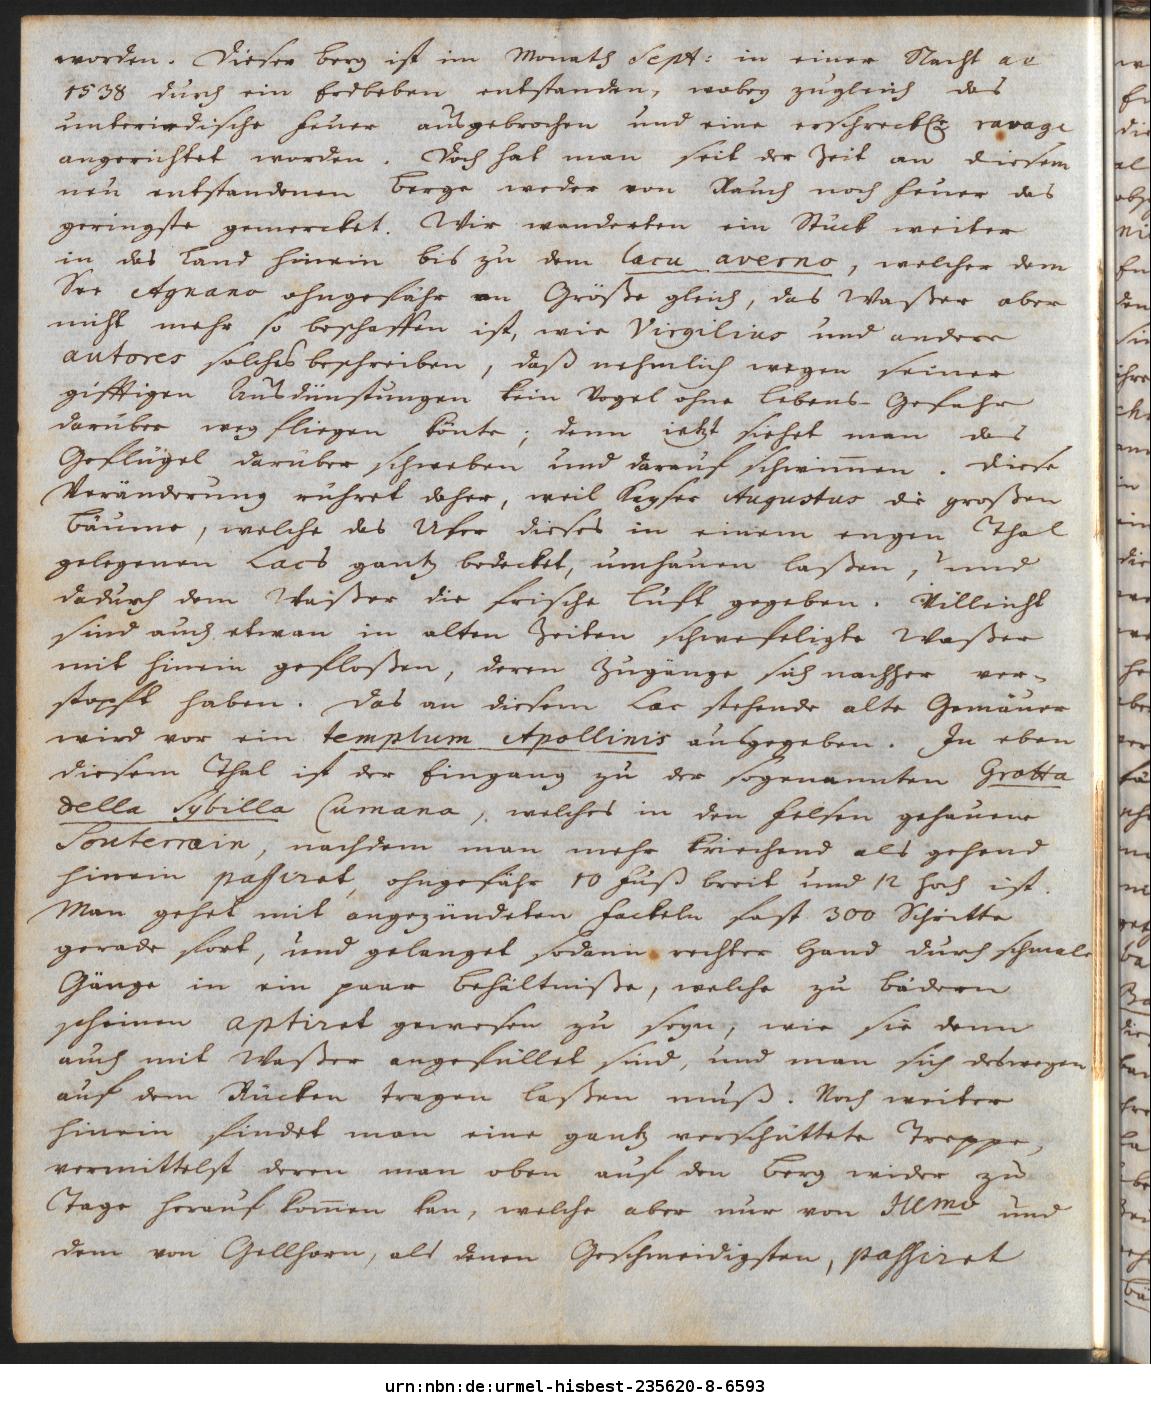 worden. Dieser berg ist im Monath Sept: in einer Nacht ao
1538 durch ein Erdbeben entstanden, wobey zugleich das
unterirrdische Feuer ausgebrochen und eine erschreckl. ravage
angerichtet worden. Doch hat man seit der Zeit an diesem
neu entstandenen Berge weder von Rauch noch Feuer das
geringste gemercket. Wir wanderten ein Stück weiter
in das Land hinein bis zu dem lacu averno, welcher dem
See Agnano ohngefähr an Größe gleich, das Waßer aber
nicht mehr so beschaffen ist, wie Virgilius und andere
autores solches beschreiben, daß nehmlich wegen seiner
gifftigen Ausdünstungen kein Vogel ohne Lebens-Gefahr
darüber weg fliegen könte; denn jetzt siehet man das
Geflügel darüber schweben und darauf schwim̅en. Diese
Veränderung rühret daher, weil Kayser Augustus die großen
Bäume, welche das Ufer dieses in einem engen Thal
gelegenen Lacs gantz bedecket, umhauen laßen, und
dadurch dem Waßer die frische Luft gegeben. Villeicht
sind auch etwan in alten Zeiten schwefeligte Waßer
mit hinein gefloßen, deren Zugänge sich nachher ver-
stopft haben. Das an diesem Lac stehende alte Gemäuer
wird vor ein templum Apollinis ausgegeben. In eben
diesem Thal ist der Eingang zu der sogenannten Grotta
della Sybilla Cumana, welches in den Felsen gehauene
Souterrain, nachdem man mehr kriechend als gehend
hinein passiret, ohngefähr 10 Fuß breit und 12 hoch ist.
Man gehet mit angezündeten Fackeln fast 300 Schritte
gerade fort, und gelanget sodann rechter Hand durch schmale
Gänge in ein paar Behältniße, welche zu Bädern
scheinen aptiret gewesen zu seyn, wie sie denn
auch mit Waßer angefüllet sind, und man sich deswegen
auf dem Rücken tragen laßen muß. Noch weiter
hinein findet man eine gantz verschüttete Treppe,
vermittelst deren man oben auf den Berg wider zu
Tage herauf kom̅en kan, welche aber nur von und
dem von Gellhorn, als denen Geschmeidigsten, passiret